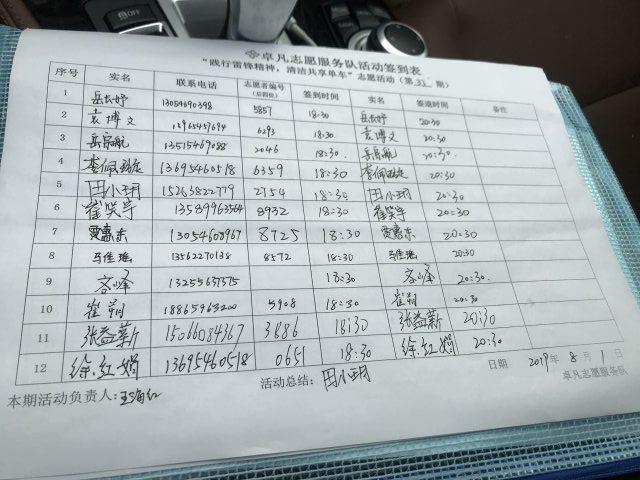 OFF
卓凡志愿服务队活动签到表
“践行雷锋精神，清洁共享单车”志愿活动（第 31 期）
序号 实名 联系电话 志愿者编号（后四位） 签到时间 实名 签退时间 备注
1 岳长妤 13054690398 5857 18:30 岳长妤 20:30
2 袁博文 6293 18:30 袁博文 20:30
3 岳宗航 13515469088 2046 18:30. 岳宗航 20:30.
4 李佩 13695460518 6359 18:30 李佩 20:30
5 田小玥 15263822779 2754 18:30 田小玥 20:30
6 崔笑宇 13589963564 8932 18:30 崔笑宇 20:30
7 贾惠东 13054608967 8725 18:30 贾惠东 20:30
8 马佳瑶 13562270138 8572 18:30 马佳瑶 20:30
9 13255637575 18:30 20:30
10 崔 18865963200 5908 18:30 崔 20:30
11 张益新 15066084367 3886 18:30 张益新 20:30
12 徐红娟 13695460518 0651 18:30 徐红娟 20:30
本期活动负责人：王海红 活动总结：田小玥 日期 2019年 8月 1日
卓凡志愿服务队